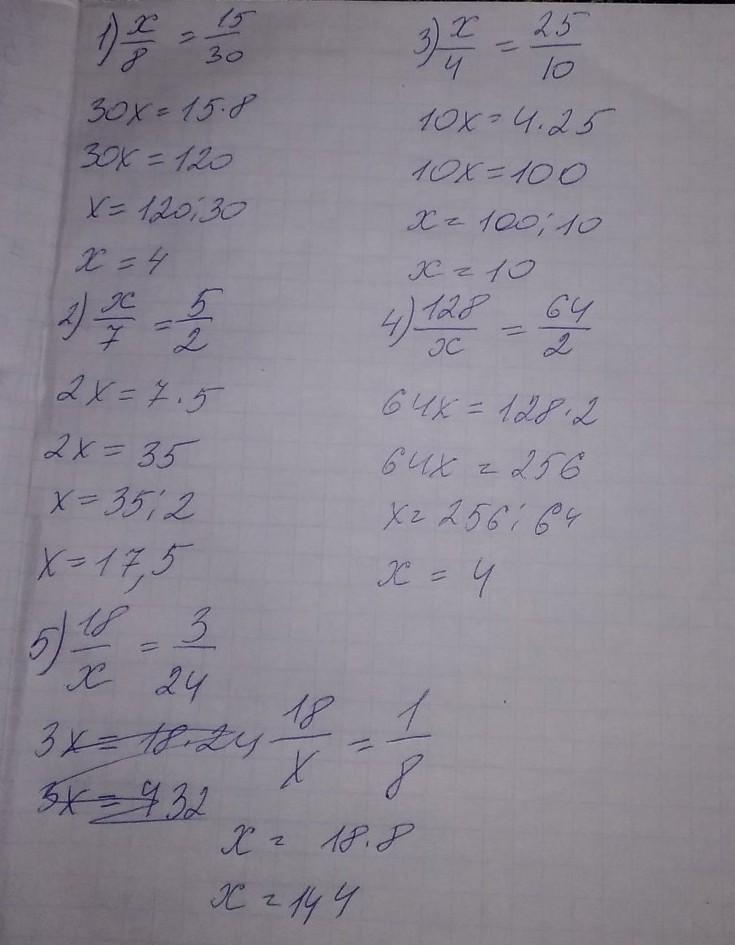 1) x/8 = 15/30
30x = 15·8
30x = 120
x = 120:30
x = 4
2) x/7 = 5/2
2x = 7·5
2x = 35
x = 35:2
x = 17,5
3) x/4 = 25/10
10x = 4·25
10x = 100
x = 100:10
x = 10
4) 128/x = 64/2
64x = 128·2
64x = 256
x = 256:64
x = 4
5) 18/x = 3/24
3x = 18·24
3x = 432
18/x = 1/8
x = 18·8
x = 144